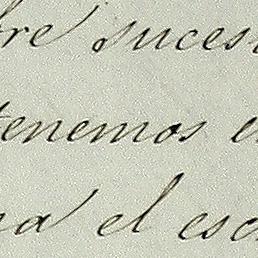 bre suces
tenemos e
na el esc